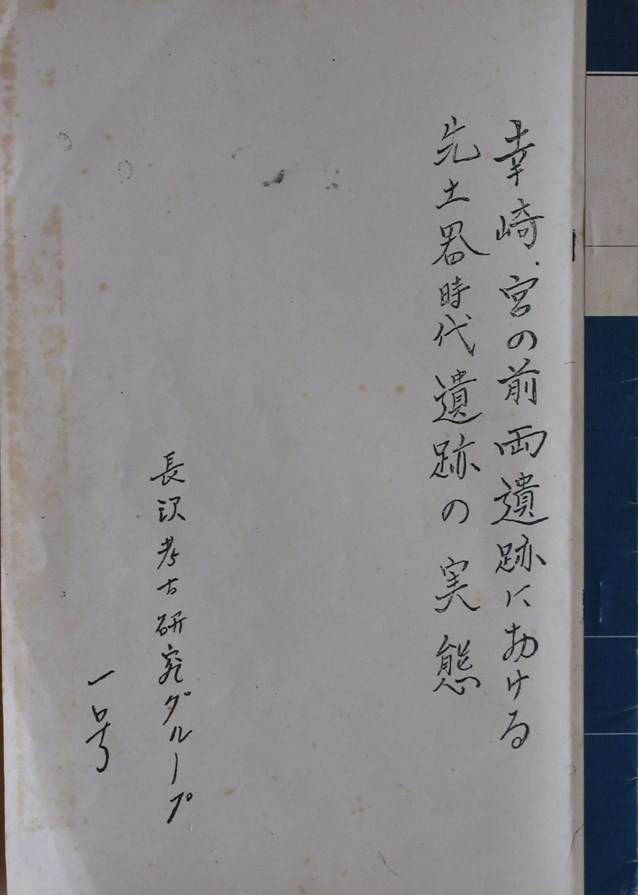 幸崎、宮の前両遺跡における
先土器時代遺跡の実態
長沢考古研究グループ
一号